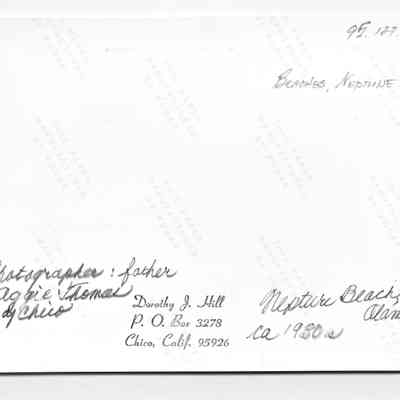 95.127.
BEACHES, NEPTUNE
Photographer : father
Maggie Thomas
of Chico
Dorothy J. Hill
P. O. Box 3278
Chico, Calif. 95926
Neptune Beach,
Alam
ca 1920s